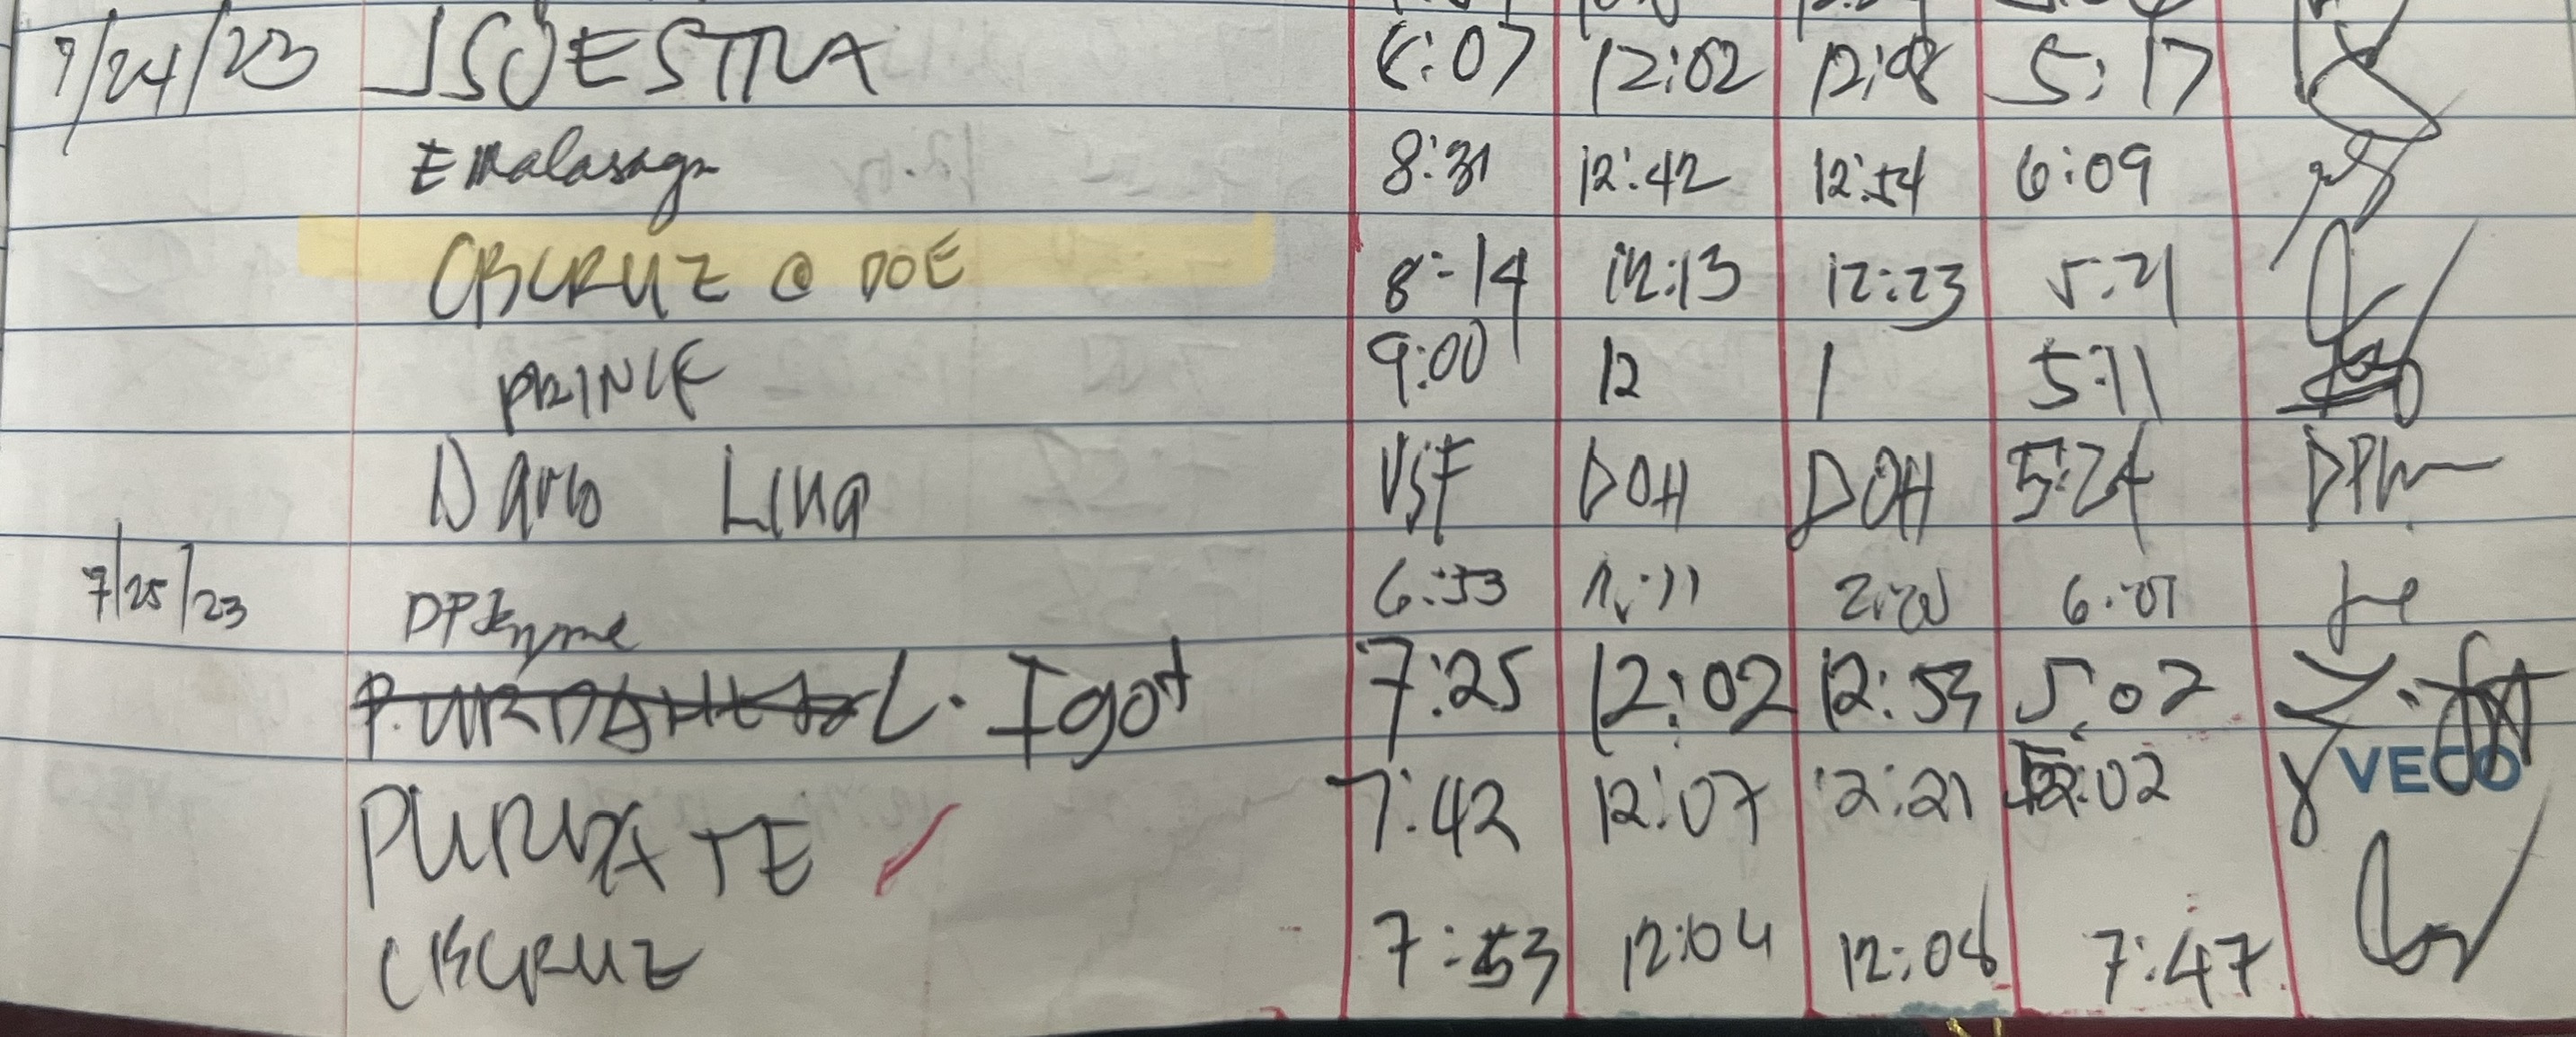 7/24/23 JSUESTRA 12:02 12:08 5:17
E Malasaga 8:31 12:42 12:54 6:09
CBCRUZ @ DOE 8:14 12:13 12:23 5:21
PRINCE 9:00 12 1 5:11
Dario Lina DOH DOH 5:24
7/25/23 6:53 6:01
L. Igot 7:25 12:02 12:53 5:02
PURDATE 7:42 12:07 12:21 5:02
VECO
CBCRUZ 7:53 12:04 12:08 7:47